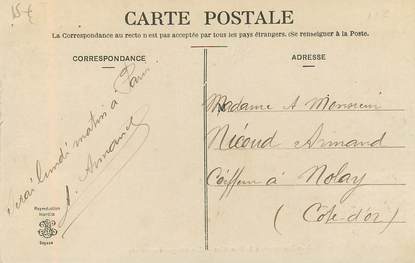 15€
112
CARTE POSTALE
La Correspondance au recto n'est pas acceptée par tous les pays étrangers. (Se renseigner à la Poste.
CORRESPONDANCE
ADRESSE
Serai lundi matin à Paris
A. Armand
Reproduction
Interdite
Déposé
Madame & Monsieur
Nicoud Armand
Coiffeur à Nolay
(Côte-d'or)